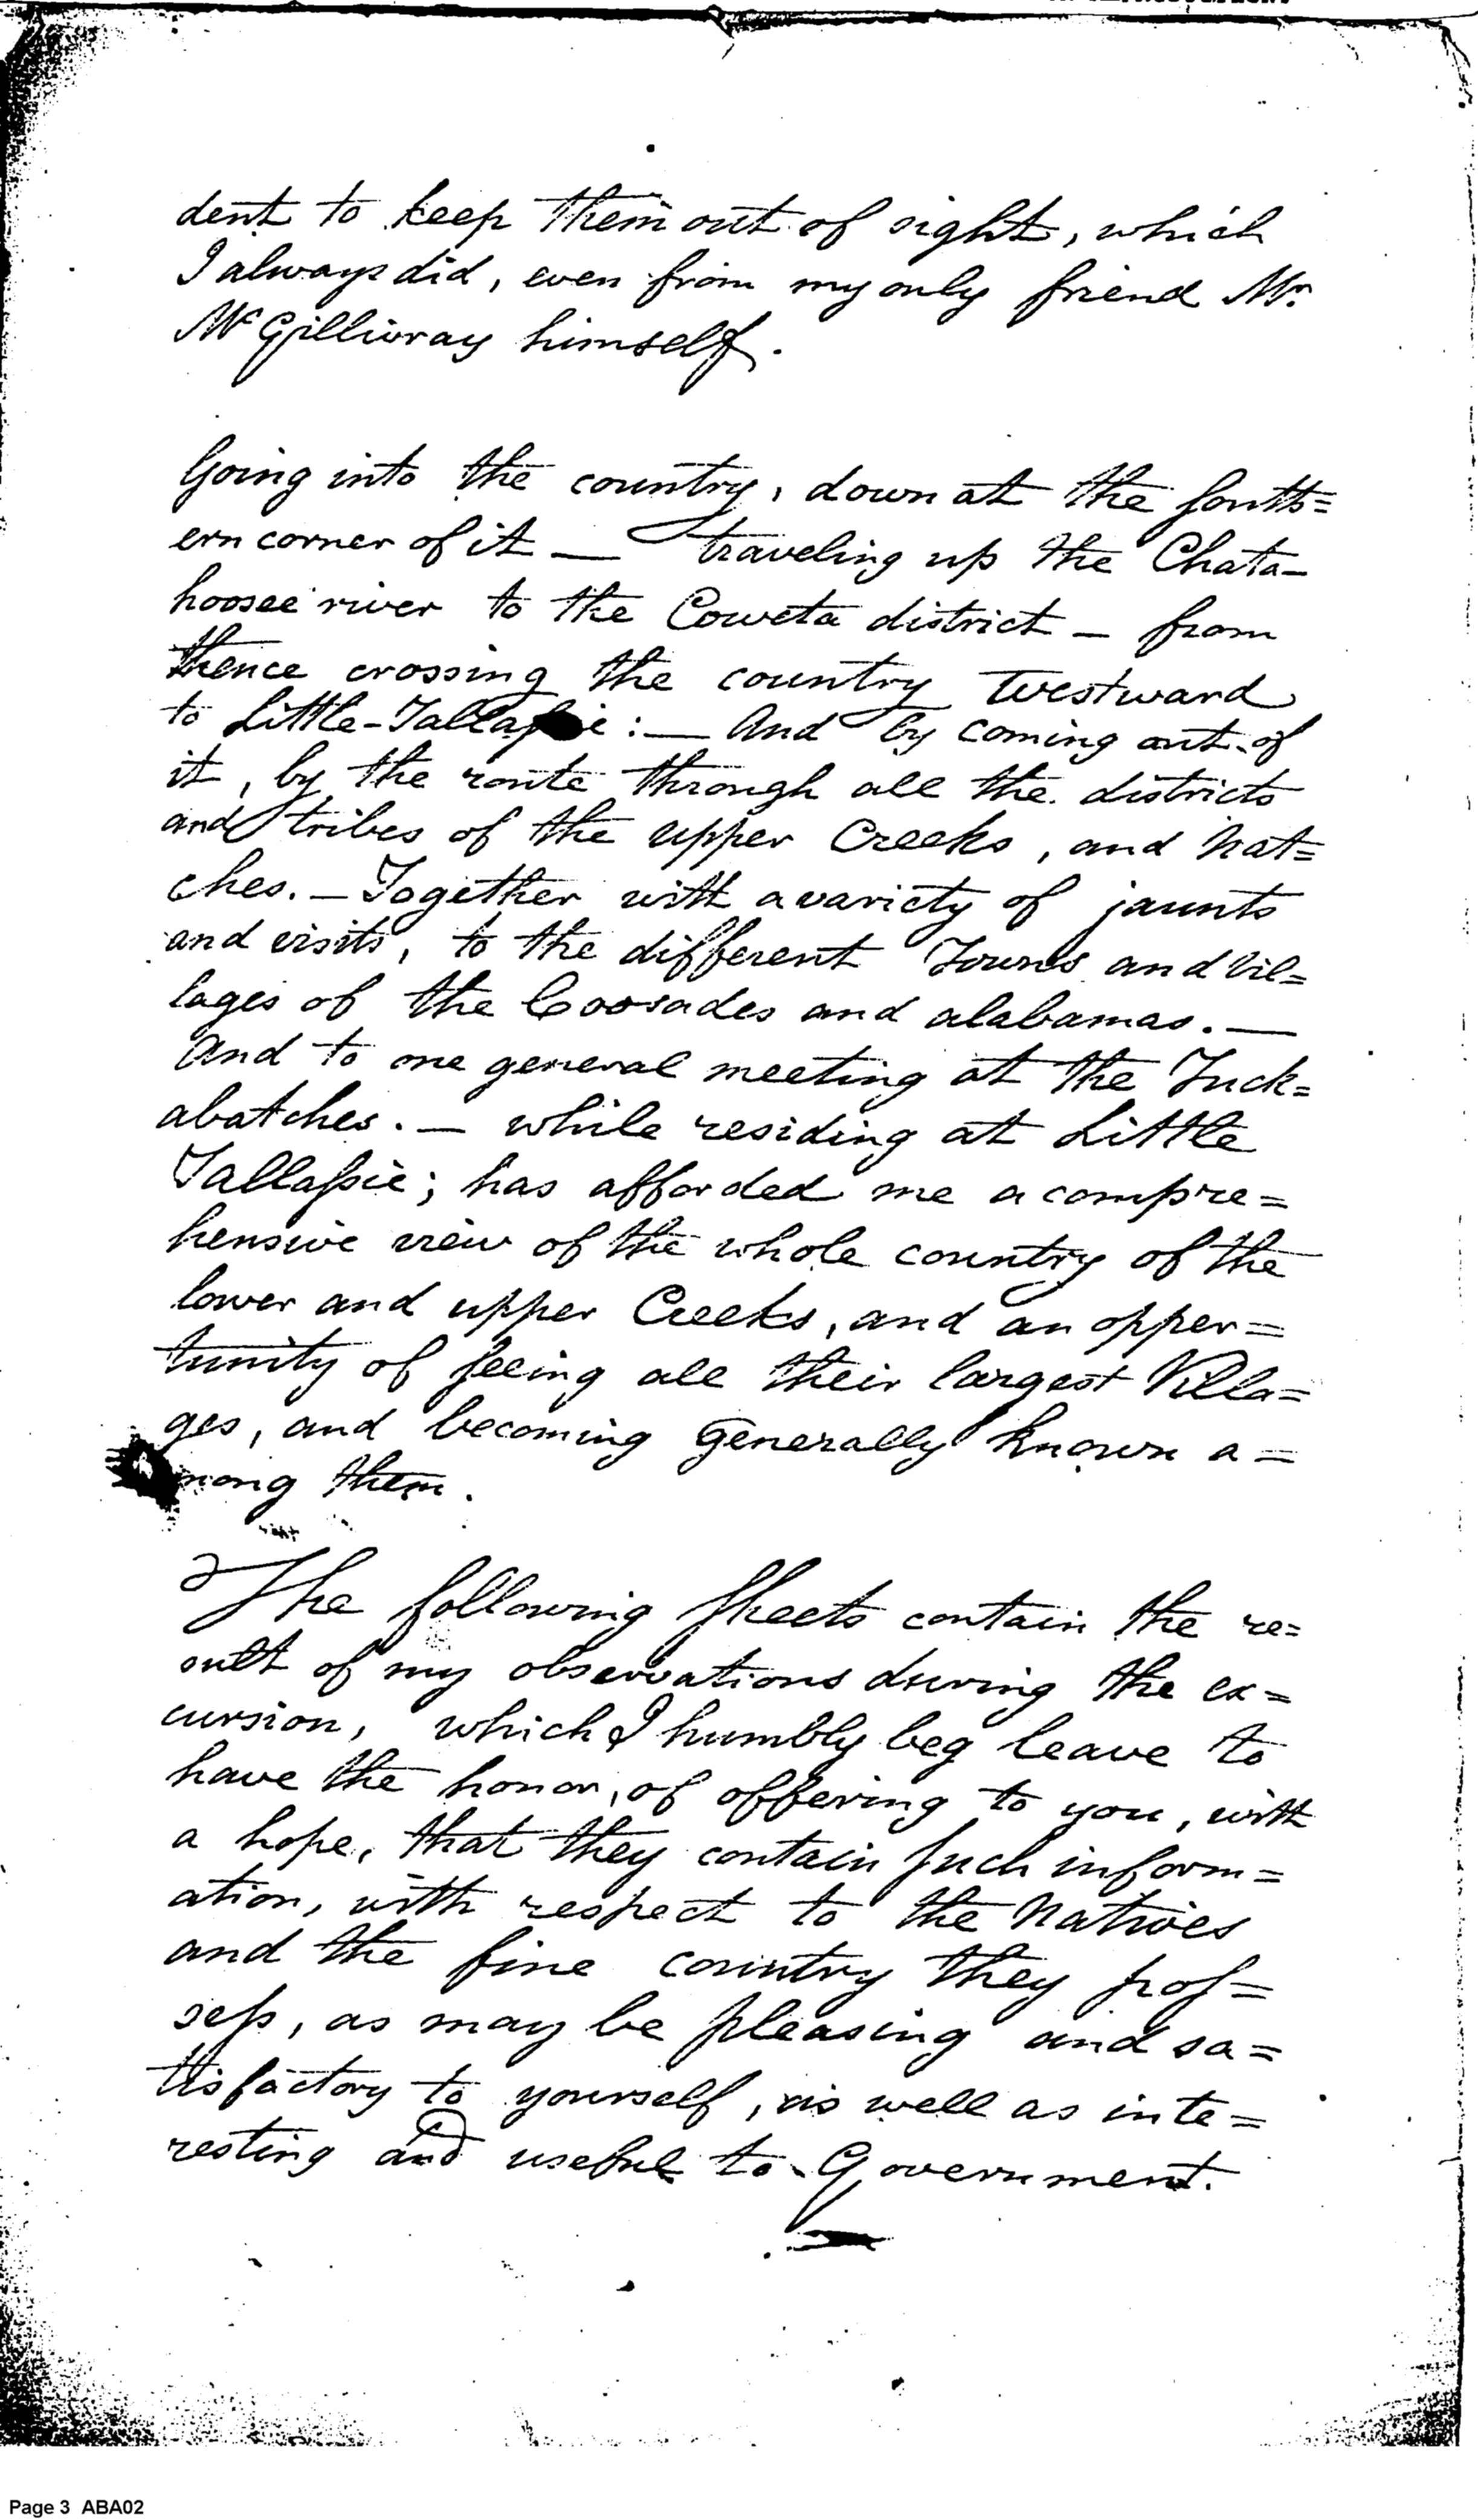 dent to keep them out of sight, which
I always did, even from my only friend Mr.
McGillivray himself.
Going into the country, down at the ſouth=
ern corner of it — traveling up the Chata-
hoosee river to the Coweta district — from
thence crossing the country Westward
to Little-Tallaſsie :— And by coming out of
it, by the route through all the districts
and tribes of the upper Creeks, and Nat=
ches. — Together with a variety of jaunts
and visits, to the different Towns and Vil=
lages of the Coosades and alabamas. —
And to one general meeting at the Tuck=
abatches. — while residing at Little
Tallaſsie; has afforded me a compre=
hensive view of the whole country of the
lower and upper Creeks, and an opper=
tunity of ſeeing all their largest Villa=
ges, and becoming Generally known a=
mong them.
The following ſheets contain the re=
sult of my observations during the ex=
cursion, which I humbly beg leave to
have the honor, of offering to you, with
a hope, that they contain ſuch inform=
ation, with respect to the Natives
and the fine country they poſ=
seſs, as may be pleasing and sa=
tisfactory to yourself, as well as inte=
resting and useful to Government.
Page 3 ABA02